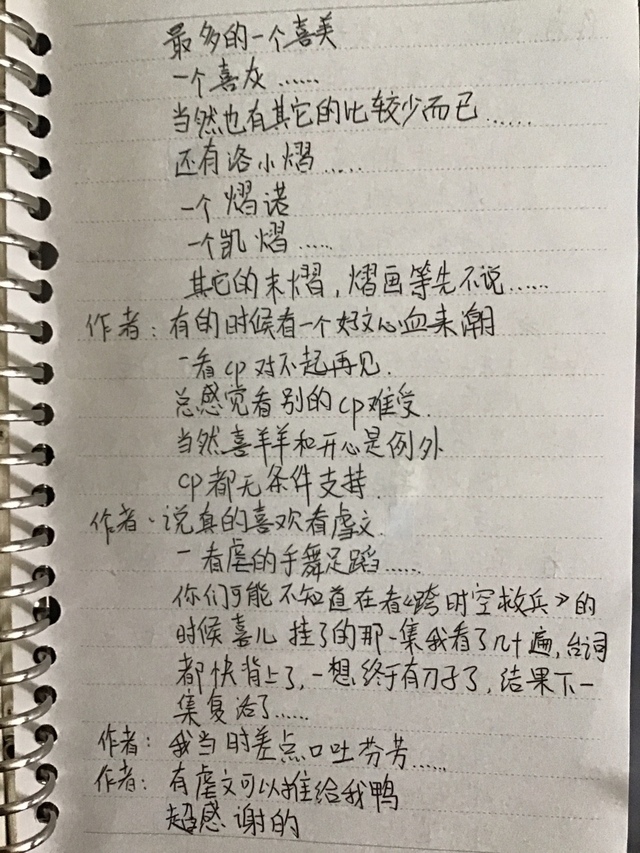 最多的一个喜美
一个喜灰……
当然也有其它的比较少而已……
还有洛小熠……
一个熠诺
一个凯熠……
其它的末熠，熠画等先不说……
作者：有的时候有一个好文心血来潮
一看cp对不起再见.
总感觉看别的cp难受.
当然喜羊羊和开心是例外
cp都无条件支持.
作者：说真的喜欢看虐文.
一看虐的手舞足蹈……
你们可能不知道在看《跨时空救兵》的
时候喜儿挂了的那一集我看了几十遍，台词
都快背上了，一想终于有刀子了，结果下一
集复活了……
作者：我当时差点口吐芬芳……
作者：有虐文可以推给我鸭
超感谢的